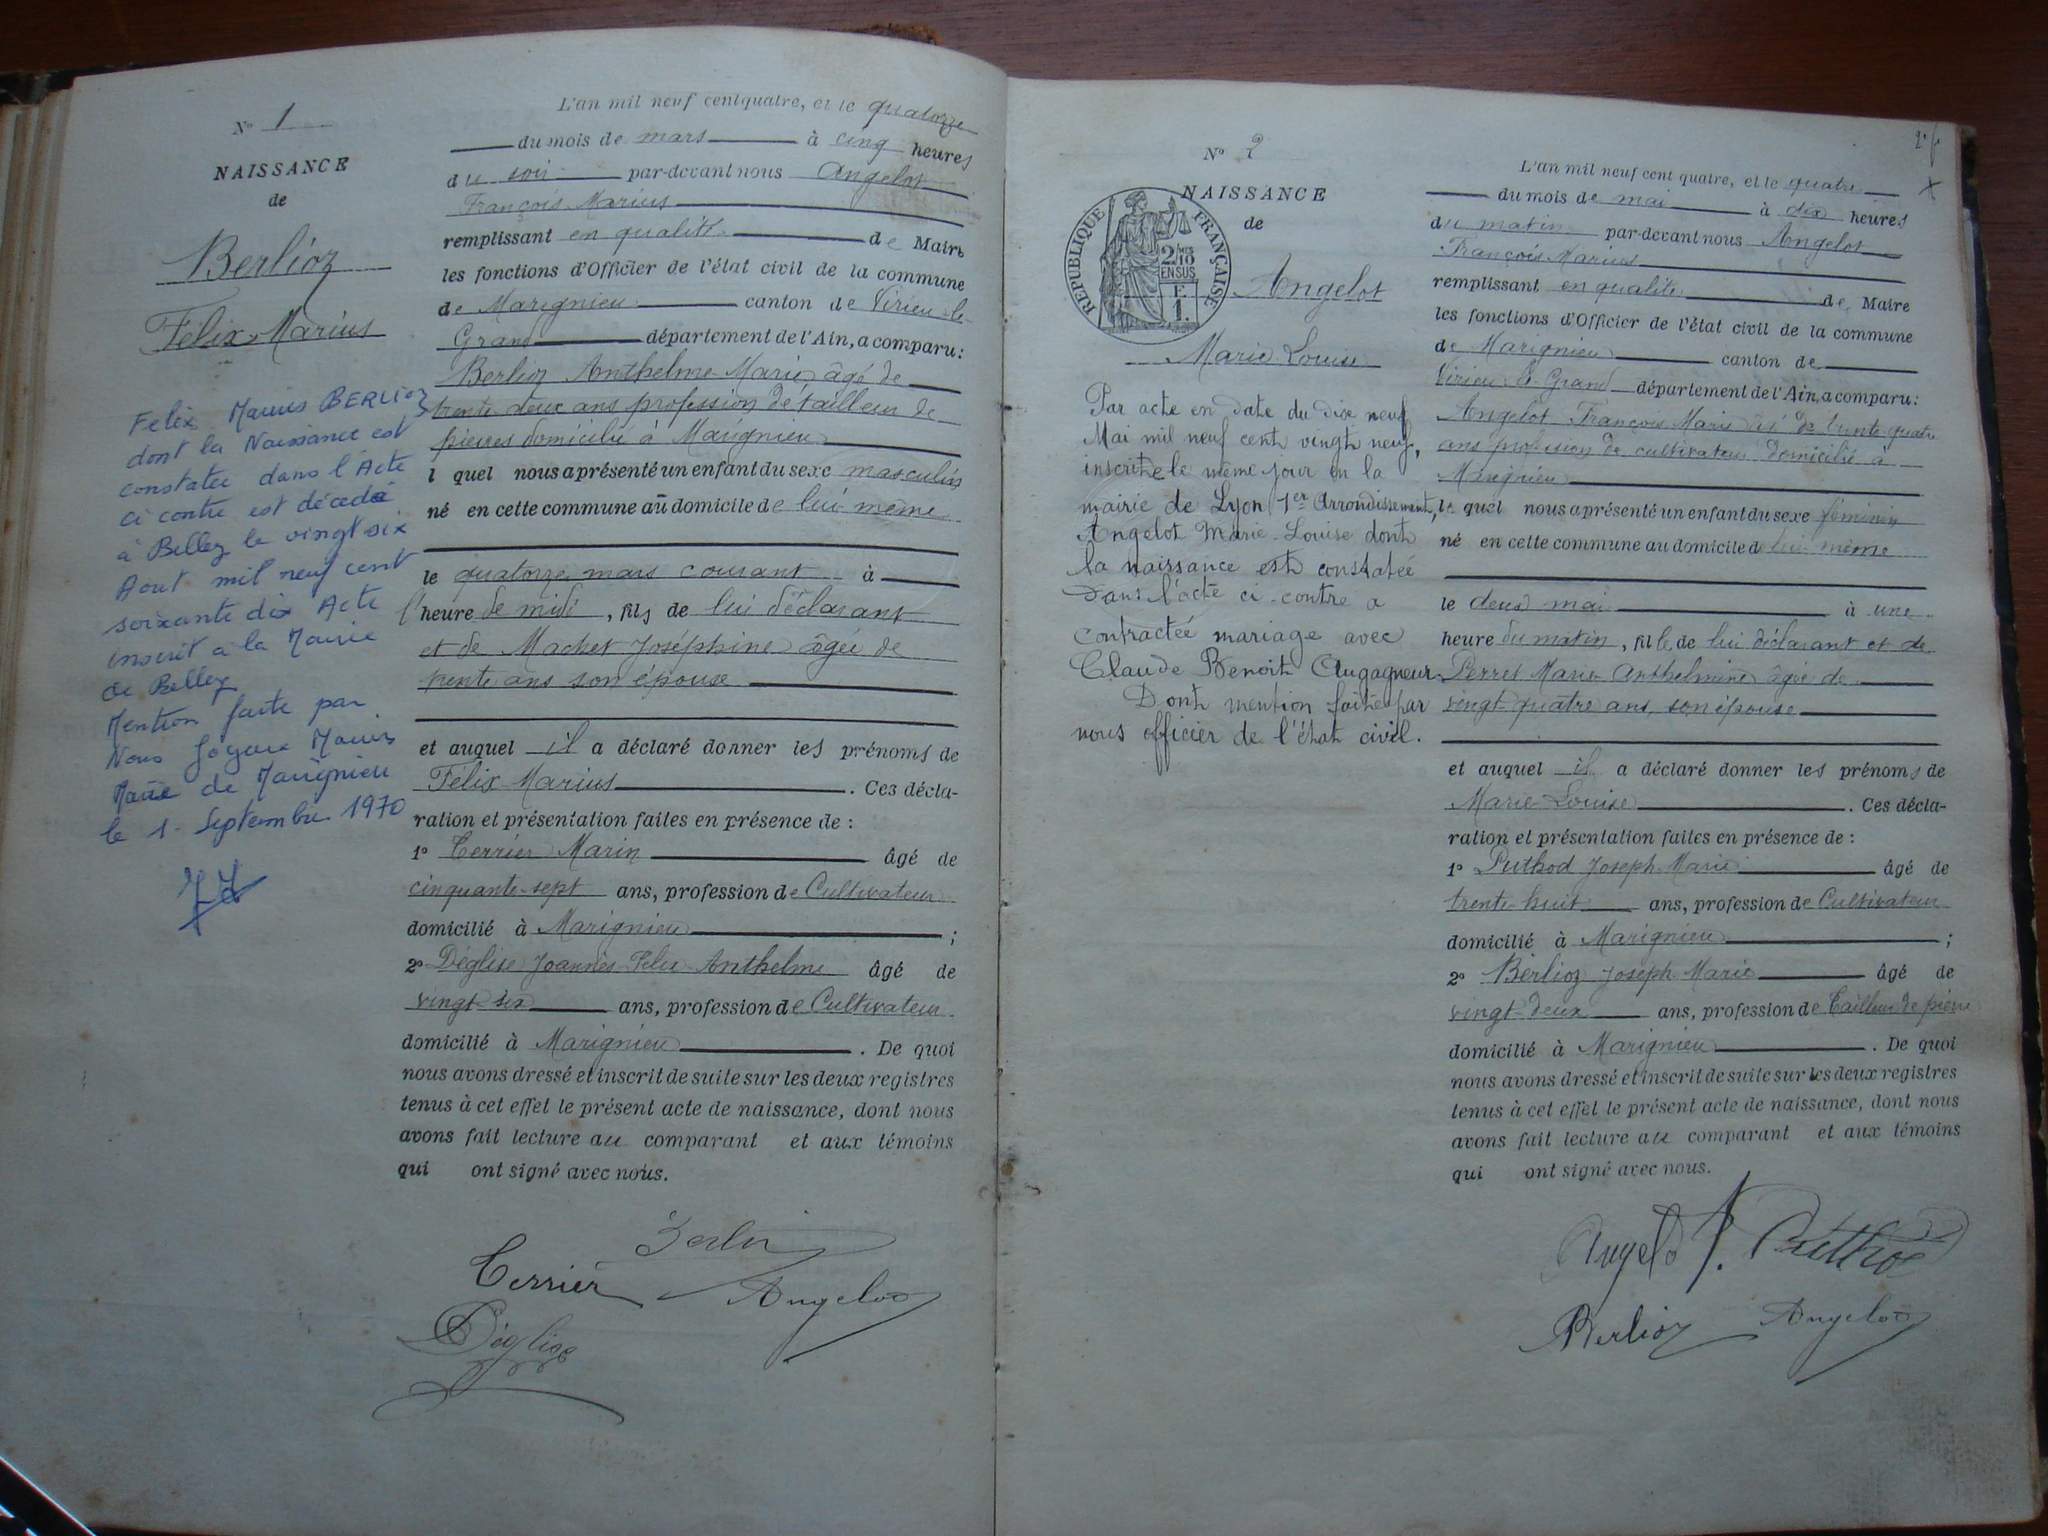 N° 1
NAISSANCE
de
Berlioz
Félix Marius
Felix Marius BERLIOZ
dont la Naissance est
constatée dans l'Acte
ci contre est décédé
à Belley le vingt six
Aout mil neuf cent
soixante dix Acte
inscrit a la Mairie
de Belley
Mention faite par
Nous Joyeux Marius
Maire de Marignieu
le 1 Septembre 1970
L'an mil neuf cent quatre, et le quatorze
du mois de mars à cinq heures
du soir par-devant nous Angelot
François Marius
remplissant en qualité de Maire
les fonctions d'Officier de l'état civil de la commune
de Marignieu canton de Virieu-le-
Grand département de l'Ain, a comparu:
Berlioz Anthelme Marie âgé de
trente deux ans profession de tailleur de
pierres domicilié à Marignieu
l quel nous a présenté un enfant du sexe masculin
né en cette commune au domicile de lui même
le quatorze mars courant à
l'heure de midi, fils de lui déclarant
et de Machet Joséphine âgée de
trente ans son épouse
et auquel il a déclaré donner les prénoms de
Félix Marius. Ces décla-
ration et présentation faites en présence de :
1° Terrier Marin âgé de
cinquante-sept ans, profession de Cultivateur
domicilié à Marignieu ;
2° Déglise Joannès Félix Anthelme âgé de
vingt-six ans, profession de Cultivateur
domicilié à Marignieu. De quoi
nous avons dressé et inscrit de suite sur les deux registres
tenus à cet effet le présent acte de naissance, dont nous
avons fait lecture au comparant et aux témoins
qui ont signé avec nous.
Berlioz
Terrier
Angelot
Déglise
N° 2
NAISSANCE
de
RÉPUBLIQUE FRANÇAISE
2/10
EN SUS
F.
1.
Angelot
Marie Louise
Par acte en date du dix neuf
Mai mil neuf cent vingt neuf,
inscrit le même jour en la
mairie de Lyon 1er Arrondissement,
Angelot Marie-Louise dont
la naissance est constatée
dans l'acte ci-contre a
contractée mariage avec
Claude Benoit Augagneur.
Dont mention faite par
nous officier de l'état civil.
L'an mil neuf cent quatre, et le quatre
du mois de mai à dix heures
du matin par-devant nous Angelot
François Marius
remplissant en qualité de Maire
les fonctions d'Officier de l'état civil de la commune
de Marignieu canton de
Virieu le Grand département de l'Ain, a comparu:
Angelot François Marie âgé de trente-quatre
ans profession de cultivateur domicilié à
Marignieu
le quel nous a présenté un enfant du sexe féminin
né en cette commune au domicile de lui même
le deux mai à une
heure du matin, fille de lui déclarant et de
Perret Marie Anthelmine âgée de
vingt quatre ans, son épouse
et auquel il a déclaré donner les prénoms de
Marie-Louise. Ces décla-
ration et présentation faites en présence de :
1° Puthod Joseph Marie âgé de
trente-huit ans, profession de Cultivateur
domicilié à Marignieu ;
2° Berlioz Joseph Marie âgé de
vingt-deux ans, profession de Tailleur de pierre
domicilié à Marignieu. De quoi
nous avons dressé et inscrit de suite sur les deux registres
tenus à cet effet le présent acte de naissance, dont nous
avons fait lecture au comparant et aux témoins
qui ont signé avec nous.
Angelot F. Puthod
Berlioz Angelot